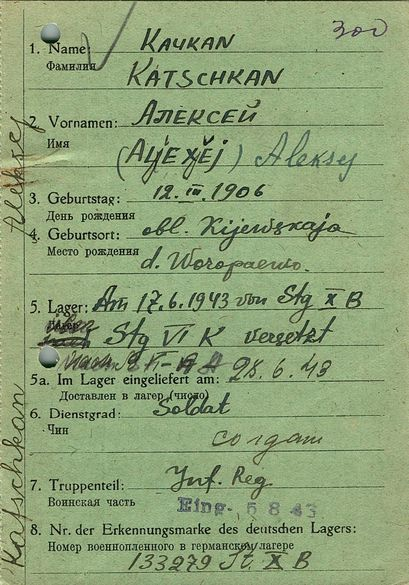 300
1. Name: Качкан
Фамилия Katschkan
2. Vornamen: Алексей
Имя (Aljexej) Aleksej
3. Geburtstag: 12. III. 1906
День рождения
4. Geburtsort: obl. Kijewskaja
Место рождения d. Woropaewo.
5. Lager: Am 17.6.1943 von Stg X B
Stg VI K versetzt
28.6.43
5a. Im Lager eingeliefert am:
Доставлен в лагерь (число)
6. Dienstgrad: Soldat
Чин солдат
7. Truppenteil: Inf. Reg
Воинская часть Eing. 5 8 43
8. Nr. der Erkennungsmarke des deutschen Lagers:
Номер военнопленного в германском лагере
133279 St. X B
Katschkan Aleksej